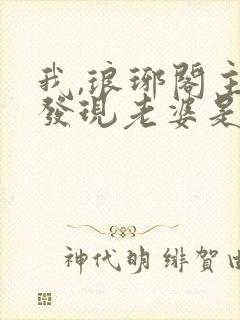 我,琅琊閣主
發現老婆是
神代明 緋賀由